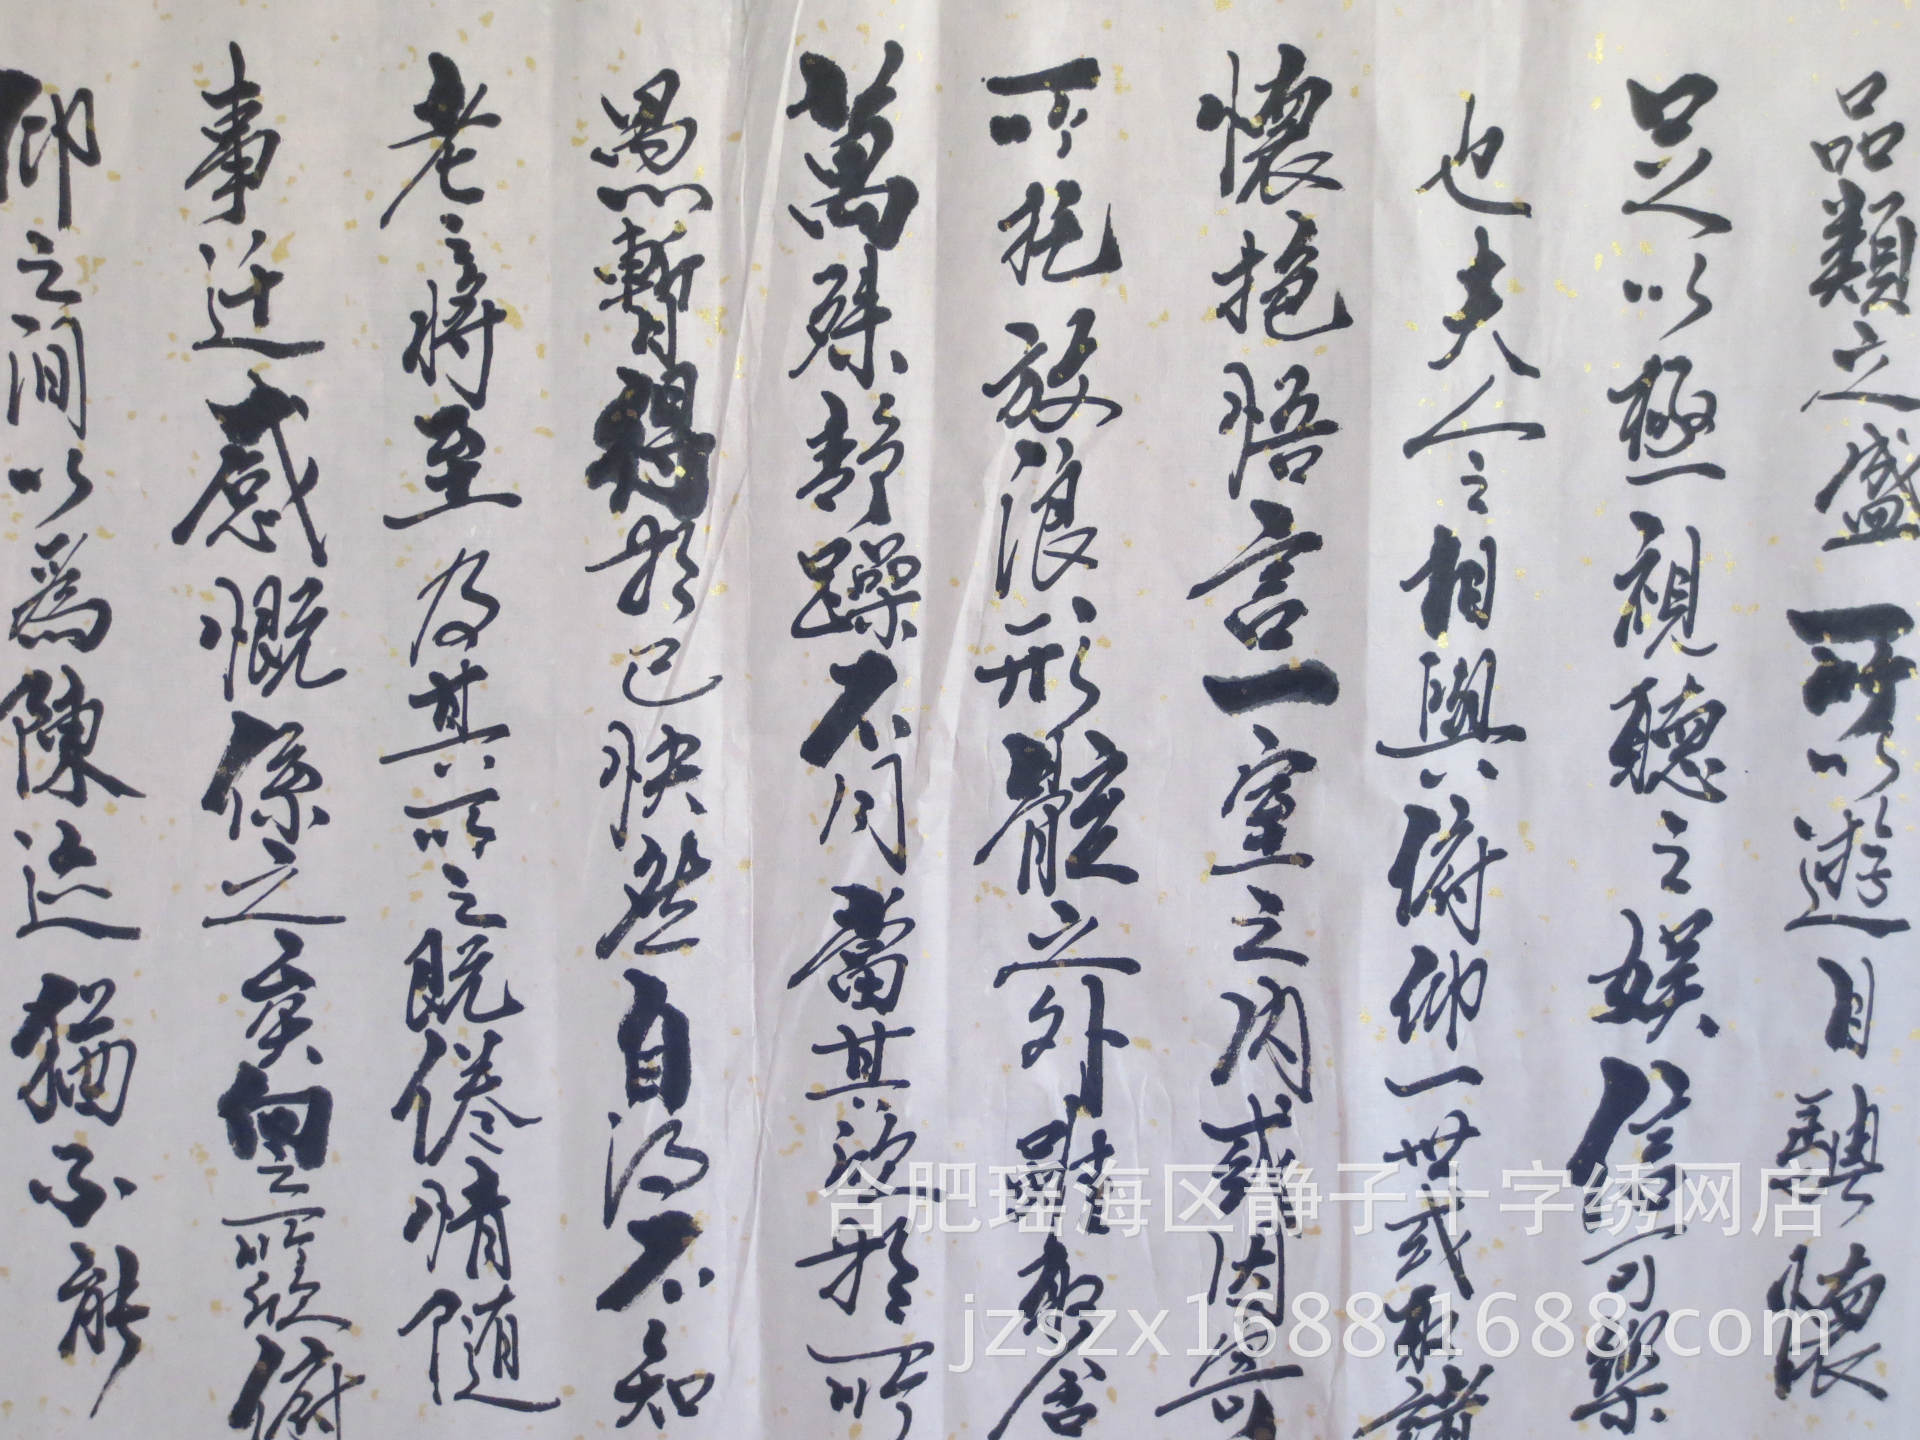 品類之盛所以遊目騁懷
足以極視聽之娛信可樂
也夫人之相與俯仰一世或取諸
懷抱悟言一室之內或因寄
所托放浪形骸之外雖趣舍
萬殊靜躁不同當其欣於所
遇暫得於己快然自得不知
老之將至及其所之既倦情隨
事遷感慨係之矣向之所欣俯
仰之間以為陳迹猶不能
合肥瑶海区静子十字绣网店
jzszx1688.1688.com